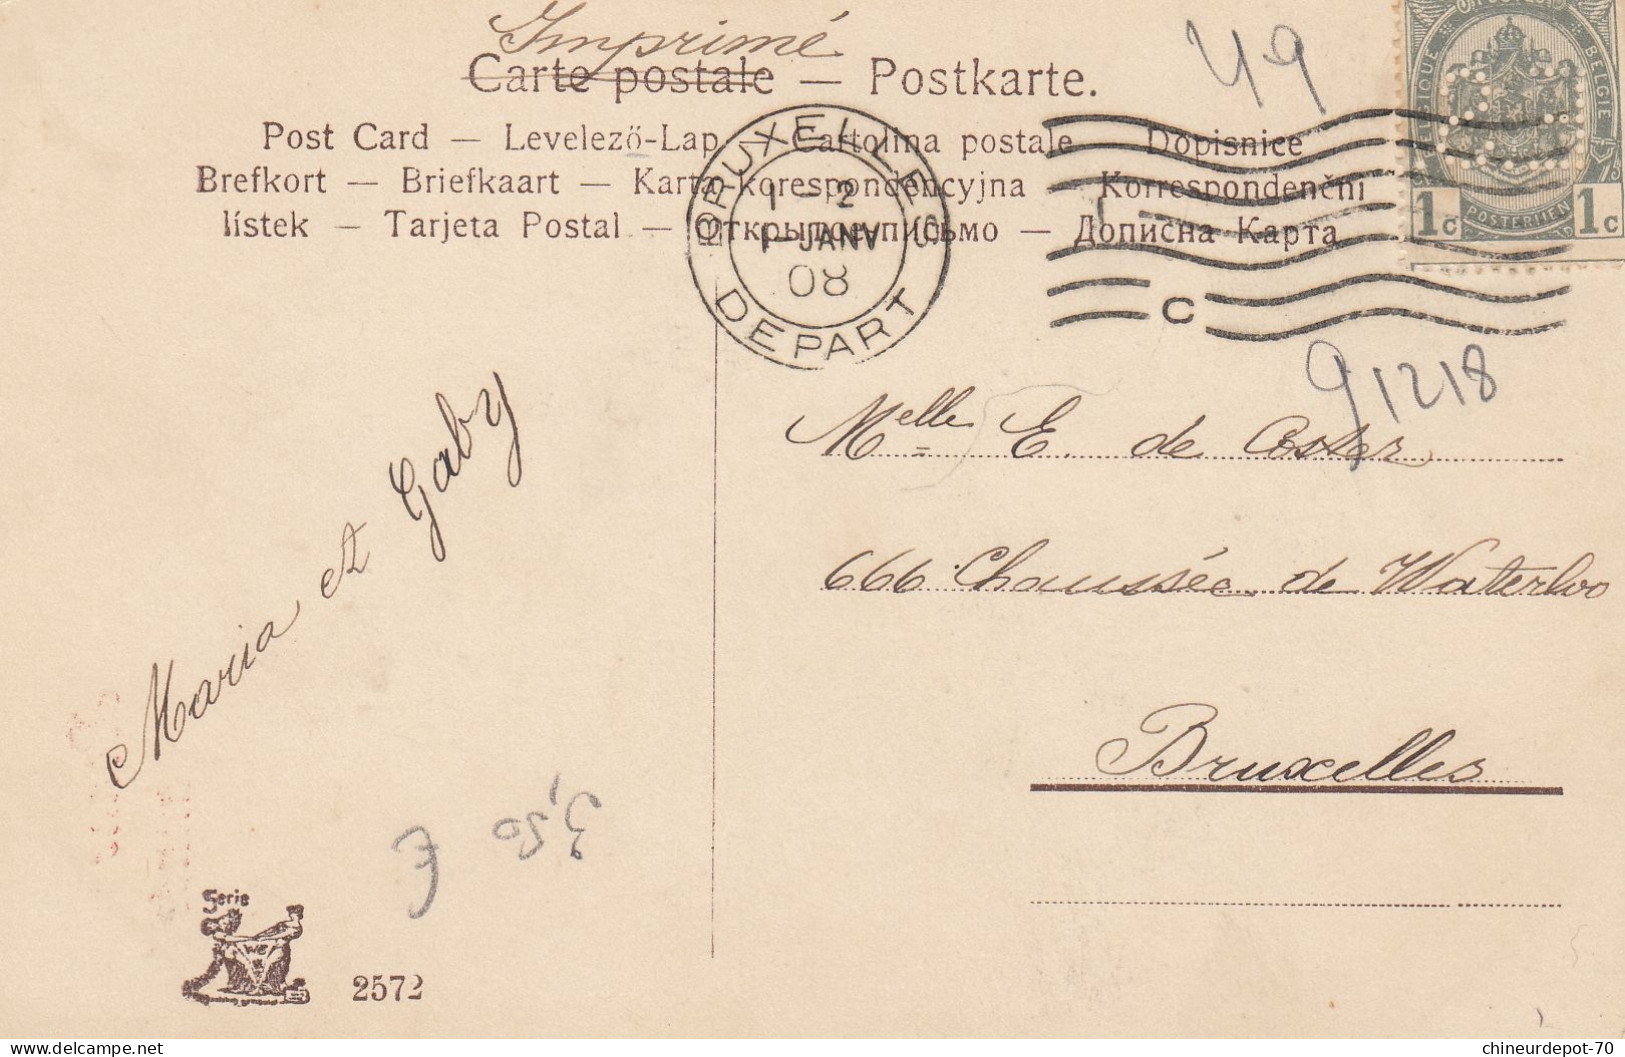 Imprimé
Carte postale — Postkarte.
49
Post Card — Levelező-Lap — Cartolina postale — Dopisnice
Brefkort — Briefkaart — Karta korespondencyjna — Korrespondenční
lístek — Tarjeta Postal — Открытое письмо — Дописна Карта
BRUXELLES
1-2
1-JANV
08
DEPART
C
BELGIQUE BELGIE
1c POSTERIJEN 1c
91218
Melle E. de Coster
666 Chaussée de Waterloo
Bruxelles
Maria et Gaby
3,50
€
Serie
2572
chineurdepot-70